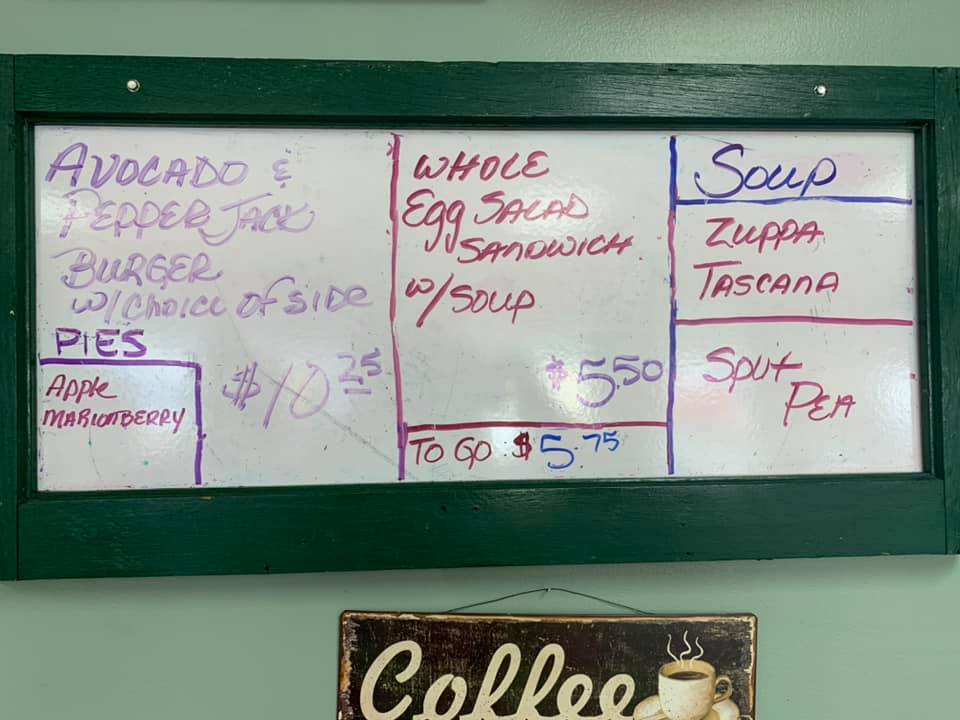 AVOCADO &
PEPPER JACK
BURGER
w/CHOICE OF SIDE
$10.25
PIES
Apple
MARIONBERRY
WHOLE
Egg SALAD
SANDWICH
w/SOUP
$5.50
TO GO $5.75
Soup
ZUPPA
TASCANA
SPLIT
PEA
Coffee